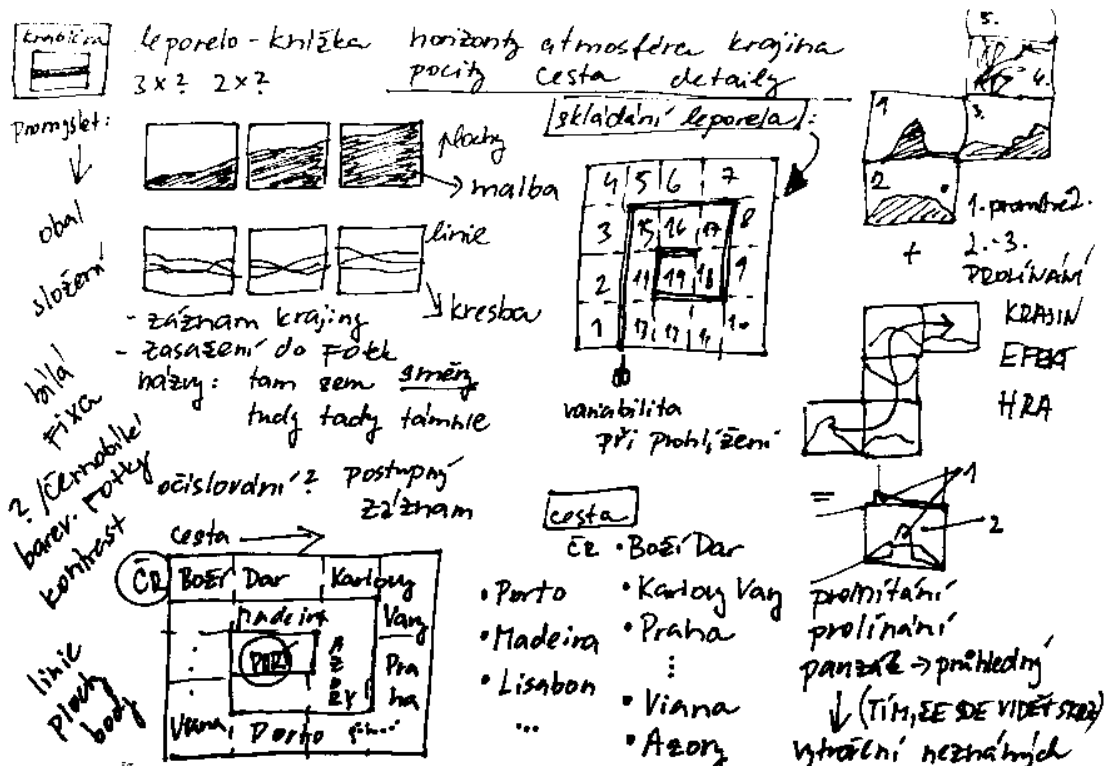 krabička
leporelo - knížka
3 x ? 2 x ?
horizonty atmosféra krajina
pocity cesta detaily
promyslet:
obal
složení
bílá
fixa
? / černobílé
barev. fotky
kontrast
linie
plochy
body
plochy
malba
linie
kresba
- záznam krajiny
- zasazení do fotek
názvy: tam sem směry
tudy tady támhle
očíslování? postupný
záznam
skládání leporela:
4 5 6 7
3 15 16 17 8
2 19 18 9
1
variabilita
při prohlížení
5.
4.
1 3.
2
1. prostřed.
+ 2.-3.
PROLÍNÁNÍ
KRAJIN
EFEKT
HRA
= 1
2
promítání
prolínání
pauzák → průhledný
(TÍM, ŽE JDE VIDĚT SKRZ)
vytváření neznámých
cesta
ČR • Boží Dar
• Karlovy Vary
• Praha
• Viana
• Azory
• Porto
• Madeira
• Lisabon
...
cesta
ČR Boží Dar Karlovy
Vary
Pra
ha
Madeira
POR
AZORY
Viana Porto